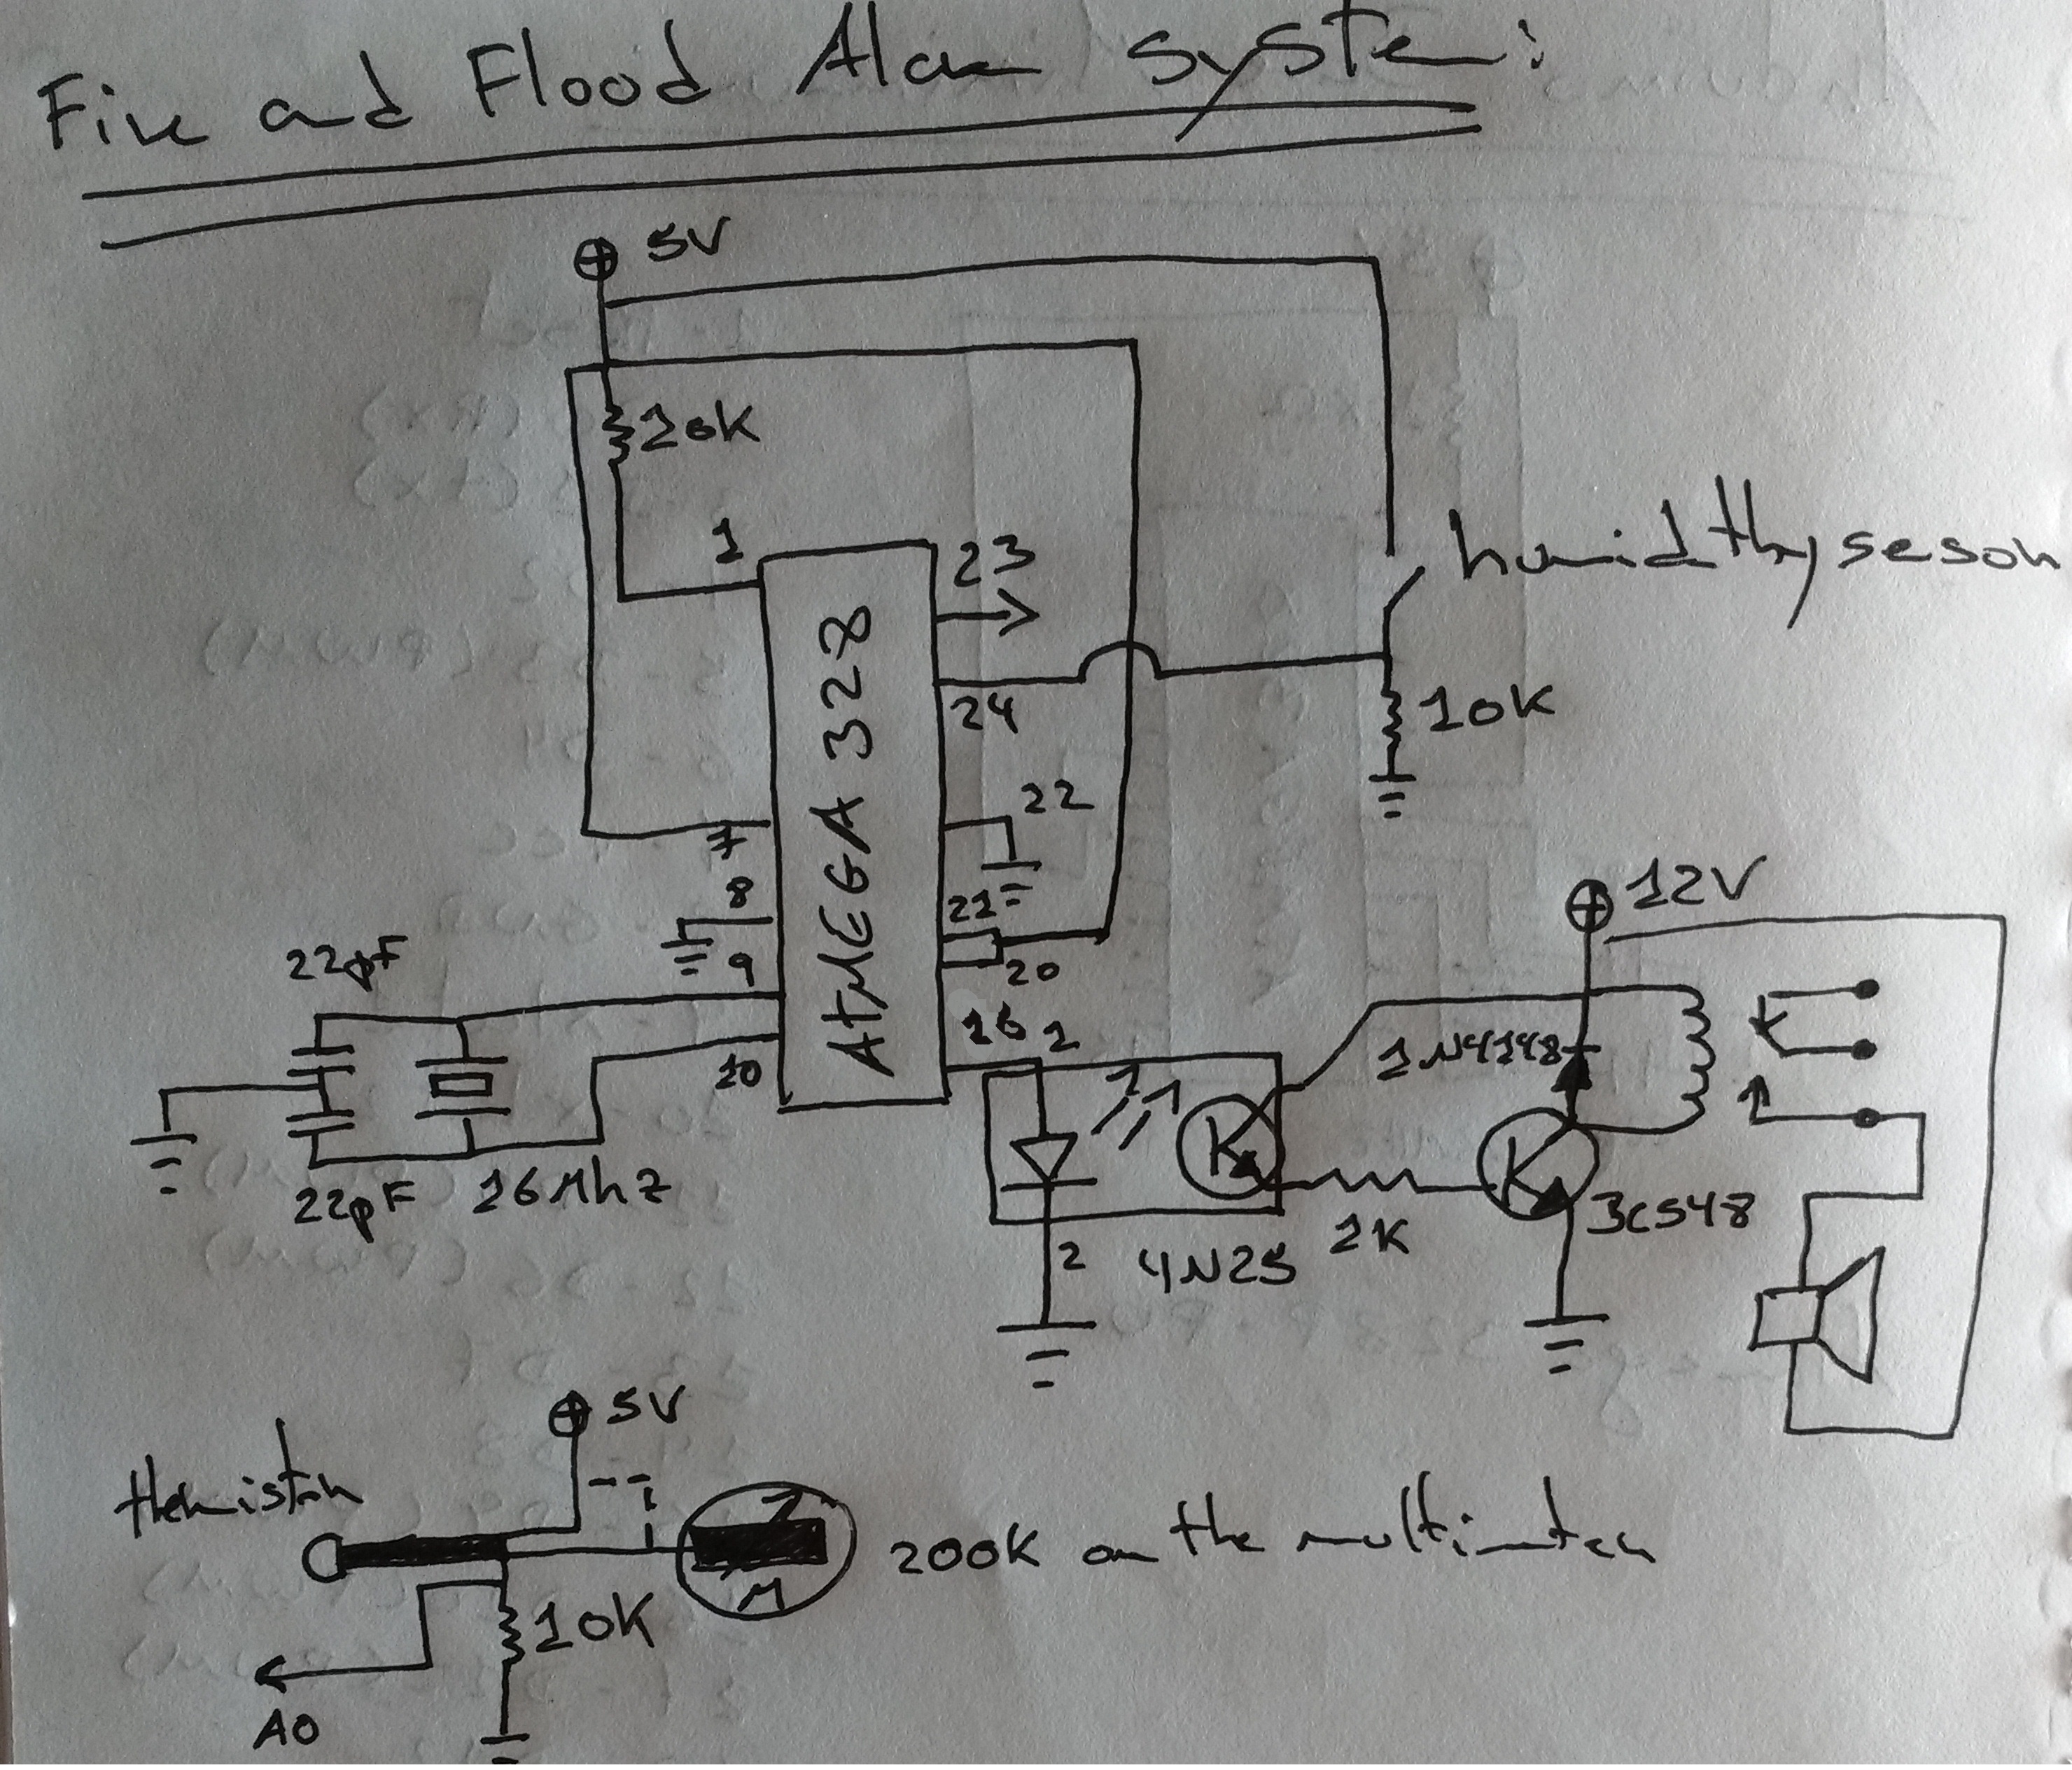 Fire and Flood Alarm System:
5V
10K
1
23
humidity sensor
ATMEGA 328
24
10K
7
22
8
21
12V
22pF
9
20
16
1
1N4148
10
22pF
16Mhz
2
4N25
1K
BC548
5V
thermistor
200K on the multimeter
M
10K
A0